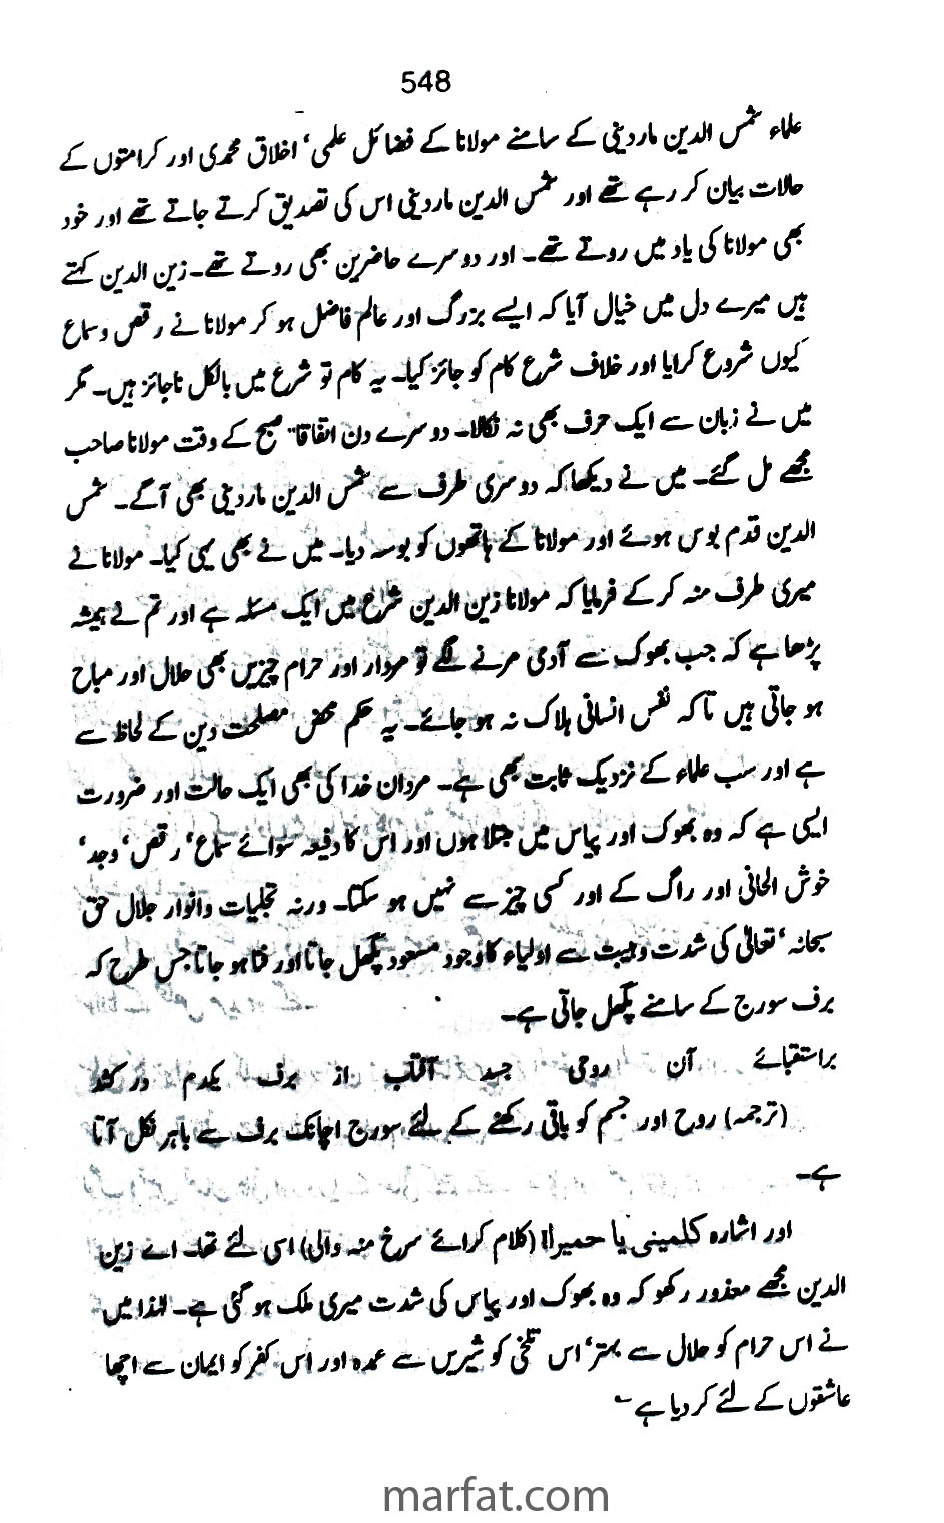 548
علماء شمس الدین ماردینی کے سامنے مولانا کے فضائل علمی، اخلاق محمدی اور کرامتوں کے
حالات بیان کر رہے تھے اور شمس الدین ماردینی اس کی تصدیق کرتے جاتے تھے اور خود
بھی مولانا کی یاد میں روتے تھے۔ اور دوسرے حاضرین بھی روتے تھے۔ زین الدین کہتے
ہیں میرے دل میں خیال آیا کہ ایسے بزرگ اور عالم فاضل ہو کر مولانا نے رقص و سماع
کیوں شروع کرایا اور خلاف شرع کام کو جائز کیا۔ یہ کام تو شرع میں بالکل ناجائز ہیں۔ مگر
میں نے زبان سے ایک حرف بھی نہ نکالا۔ دوسرے دن اتفاقاً صبح کے وقت مولانا صاحب
مجھے مل گئے۔ میں نے دیکھا کہ دوسری طرف سے شمس الدین ماردینی بھی آگے۔ شمس
الدین قدم بوس ہوئے اور مولانا کے ہاتھوں کو بوسہ دیا۔ میں نے بھی یہی کیا۔ مولانا نے
میری طرف منہ کر کے فرمایا کہ مولانا زین الدین شرع میں ایک مسئلہ ہے اور تم نے ہمیشہ
پڑھا ہے کہ جب بھوک سے آدمی مرنے لگے تو مردار اور حرام چیزیں بھی حلال اور مباح
ہو جاتی ہیں تاکہ نفس انسانی ہلاک نہ ہو جائے۔ یہ حکم محض مصلحت دین کے لحاظ سے
ہے اور سب علماء کے نزدیک ثابت بھی ہے۔ مردان خدا کی بھی ایک حالت اور ضرورت
ایسی ہے کہ وہ بھوک اور پیاس میں مبتلا ہوں اور اس کا دفیعہ سوائے سماع، رقص، وجد،
خوش الحانی اور راگ کے اور کسی چیز سے نہیں ہو سکتا۔ ورنہ تجلیات و انوار جلال حق
سبحانہ، تعالیٰ کی شدت و ہیبت سے اولیاء کا وجود مسعود پگھل جاتا اور فنا ہو جاتا جس طرح کہ
برف سورج کے سامنے پگھل جاتی ہے۔
براستقبائے آن روحی جسد آفتاب از برف یکدم درکشد
(ترجمہ) روح اور جسم کو باقی رکھنے کے لئے سورج اچانک برف سے باہر نکل آتا
ہے۔
اور اشارہ کلمینی یا حمیرا! (کلام کرائے سرخ منہ والی) اسی لئے تھا۔ اے زین
الدین مجھے معذور رکھو کہ وہ بھوک اور پیاس کی شدت میری ملک ہو گئی ہے۔ لہٰذا میں
نے اس حرام کو حلال سے بہتر، اس تلخی کو شیریں سے عمدہ اور اس کفر کو ایمان سے اچھا
عاشقوں کے لئے کر دیا ہے
marfat.com